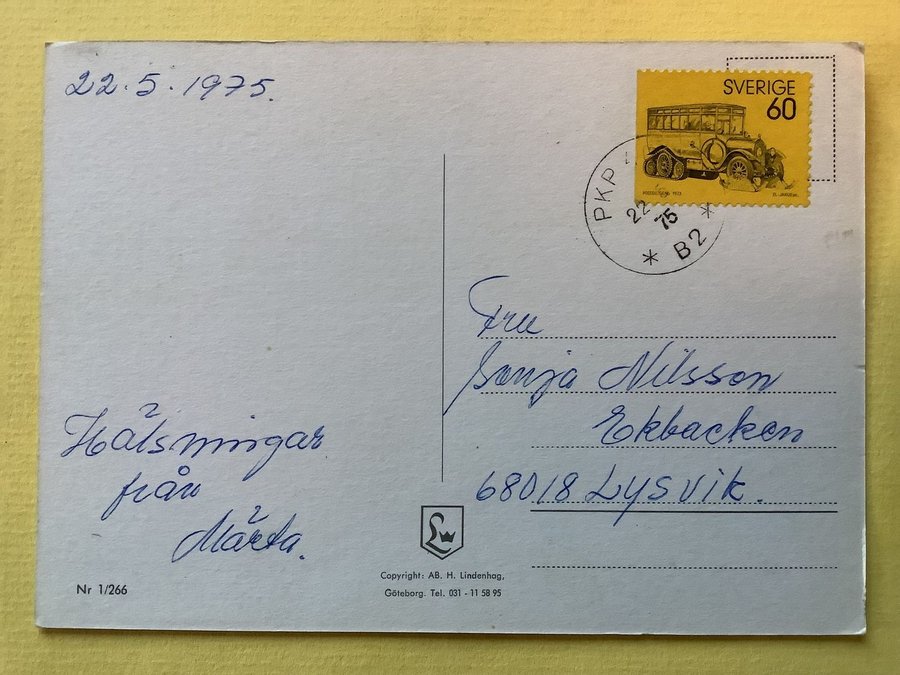 22.5.1975.
SVERIGE
60
PKP
22
75
* B2 *
Fru
Sonja Nilsson
Ekbacken
68018 Lysvik.
Hälsningar
från
Märta.
Nr 1/266
L
Copyright: AB. H. Lindenhag,
Göteborg. Tel. 031 - 11 58 95